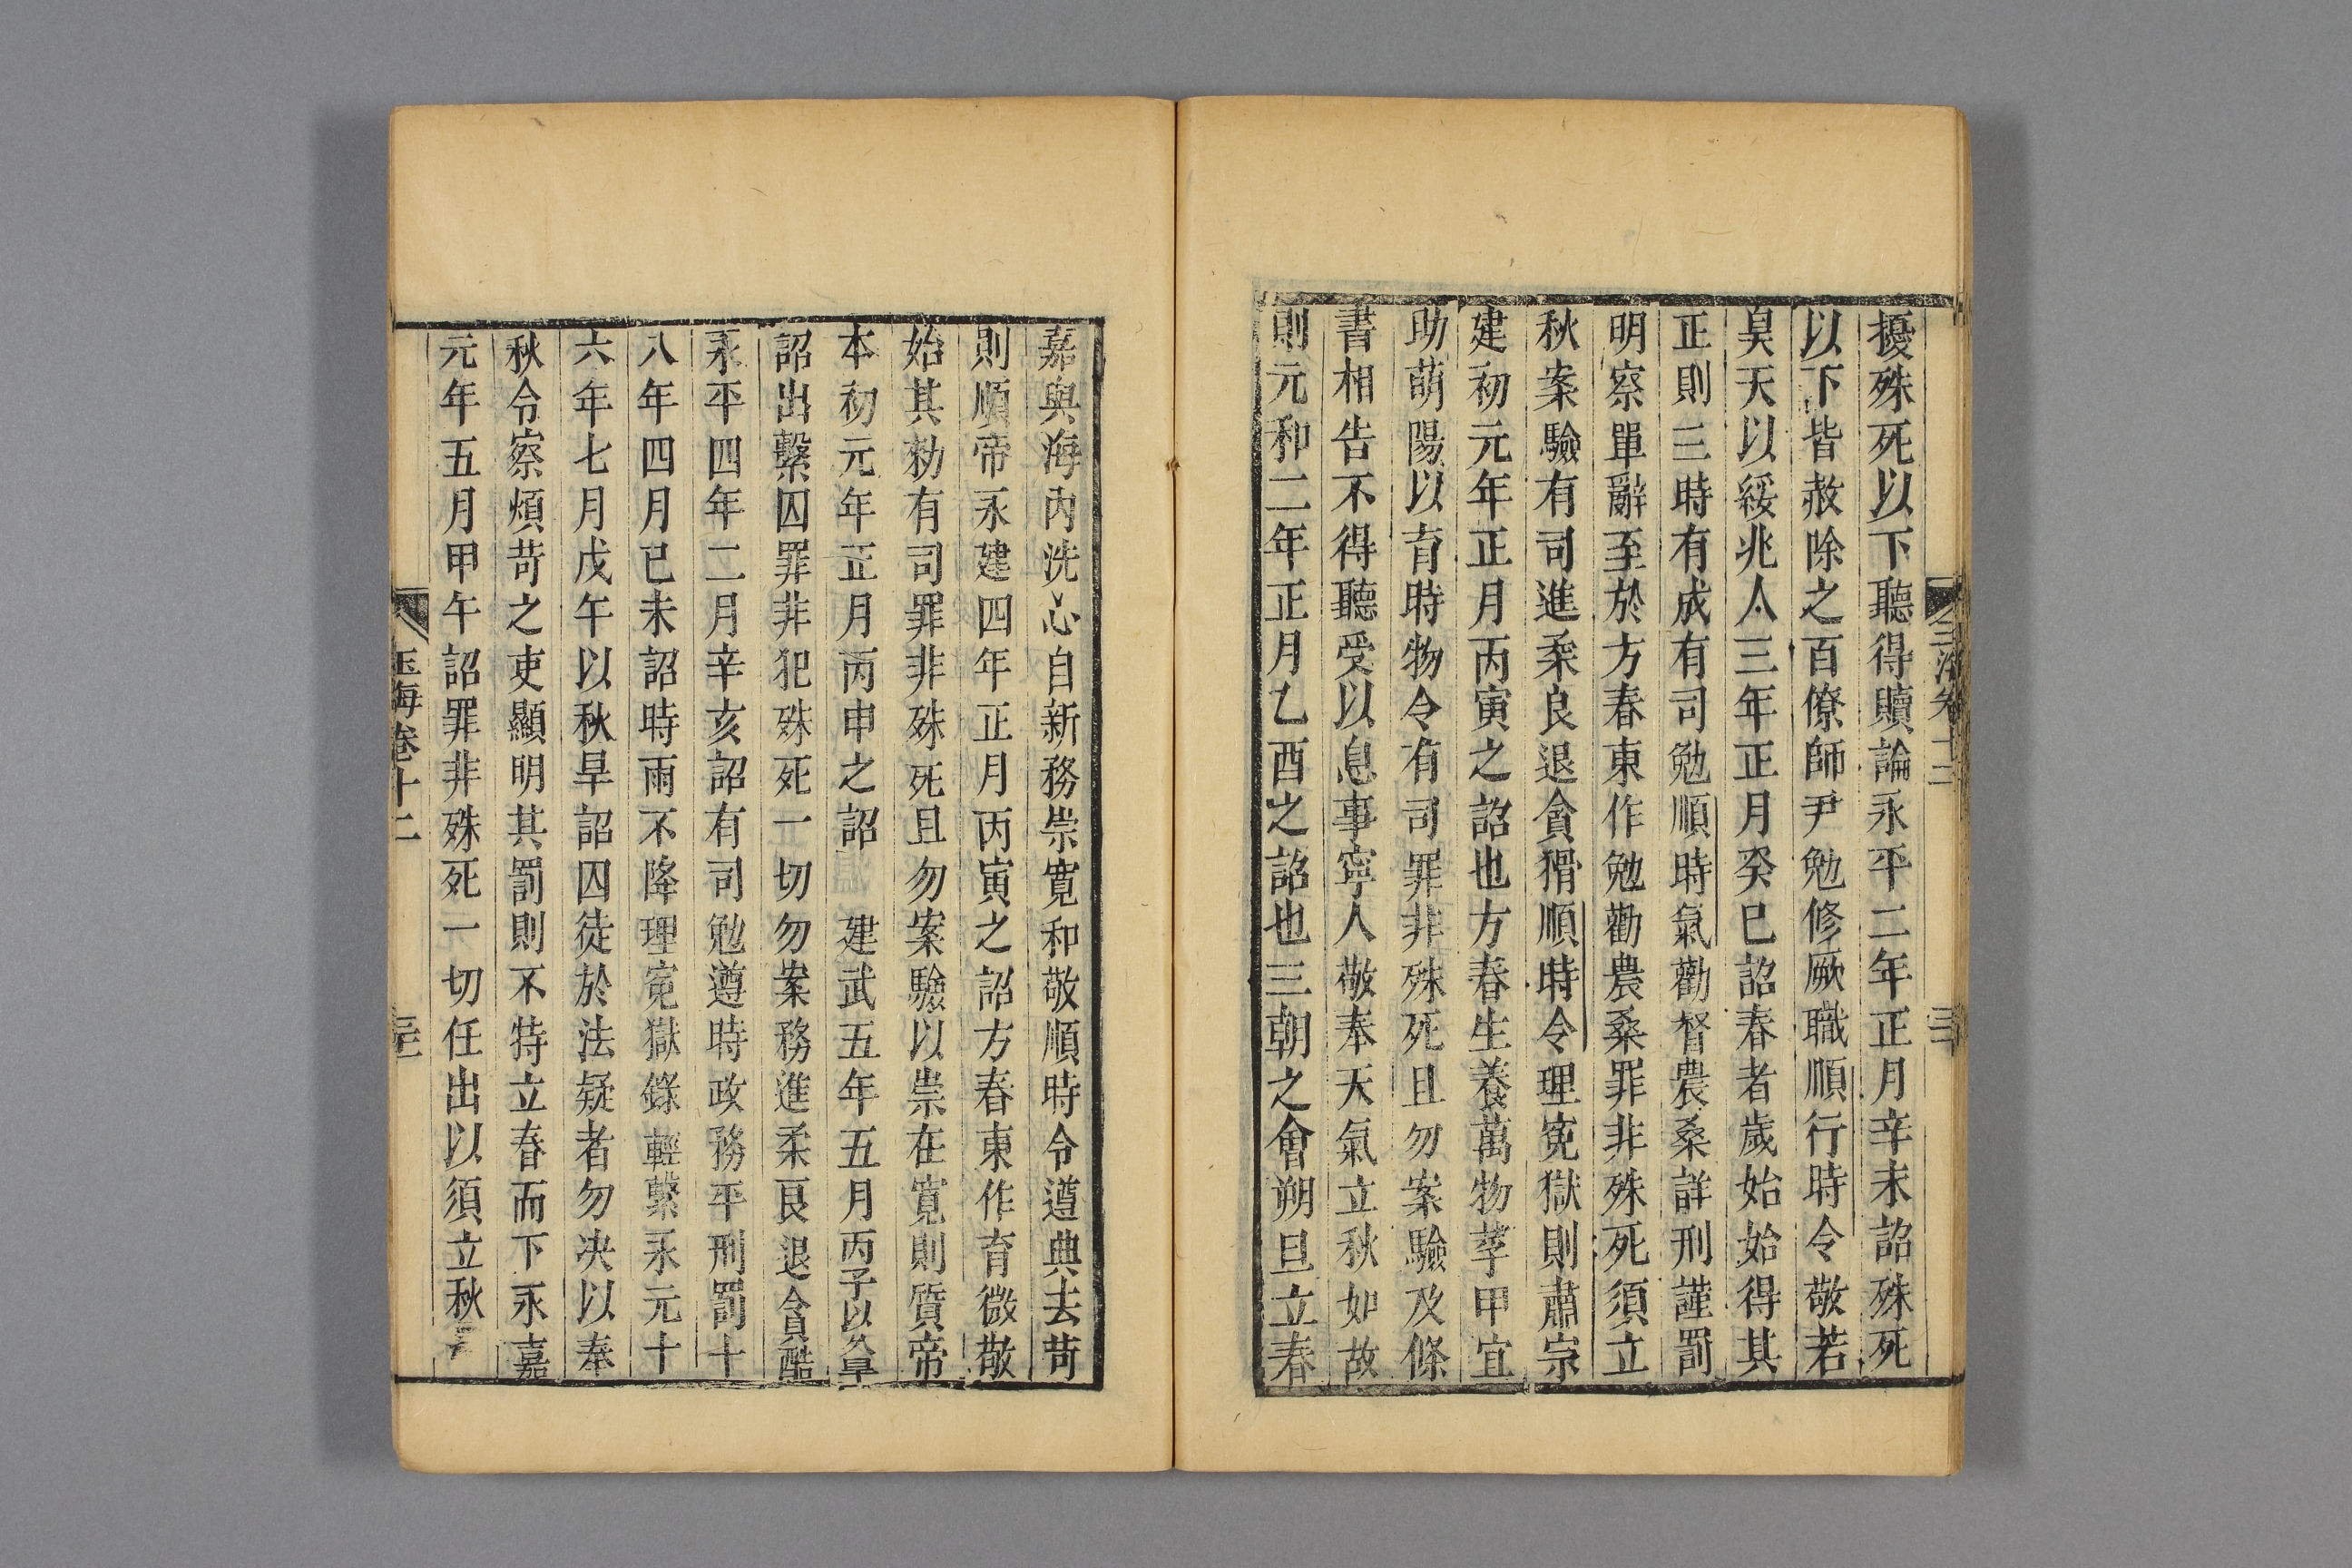 擾殊死以下聽得贖論永平二年正月辛未詔殊死
以下皆赦除之百僚師尹勉修厥職順行時令敬若
昊天以綏兆人三年正月癸巳詔春者歲始始得其
正則三時有成有司勉順時氣勸督農桑詳刑謹罰
明察單辭至於方春東作勉勸農桑罪非殊死須立
秋案驗有司進柔良退貪猾順時令理寃獄則肅宗
建初元年正月丙寅之詔也方春生養萬物莩甲宜
助萌陽以育時物令有司罪非殊死且勿案驗及條
書相告不得聽受以息事寧人敬奉天氣立秋如故
則元和二年正月乙酉之詔也三朝之會朔旦立春
嘉與海內洗心自新務崇寬和敬順時令遵典去苛
則順帝永建四年正月丙寅之詔方春東作育微敬
始其勑有司罪非殊死且勿案驗以崇在寬則質帝
本初元年正月丙申之詔 建武五年五月丙子以久旱
詔出繫囚罪非犯殊死一切勿案務進柔良退貪酷
永平四年二月辛亥詔有司勉遵時政務平刑罰十
八年四月已未詔時雨不降理寃獄錄輕繫永元十
六年七月戊午以秋旱詔囚徒於法疑者勿决以奉
秋令察煩苛之吏顯明其罰則不待立春而下永嘉
元年五月甲午詔罪非殊死一切任出以須立秋
玉海卷十二